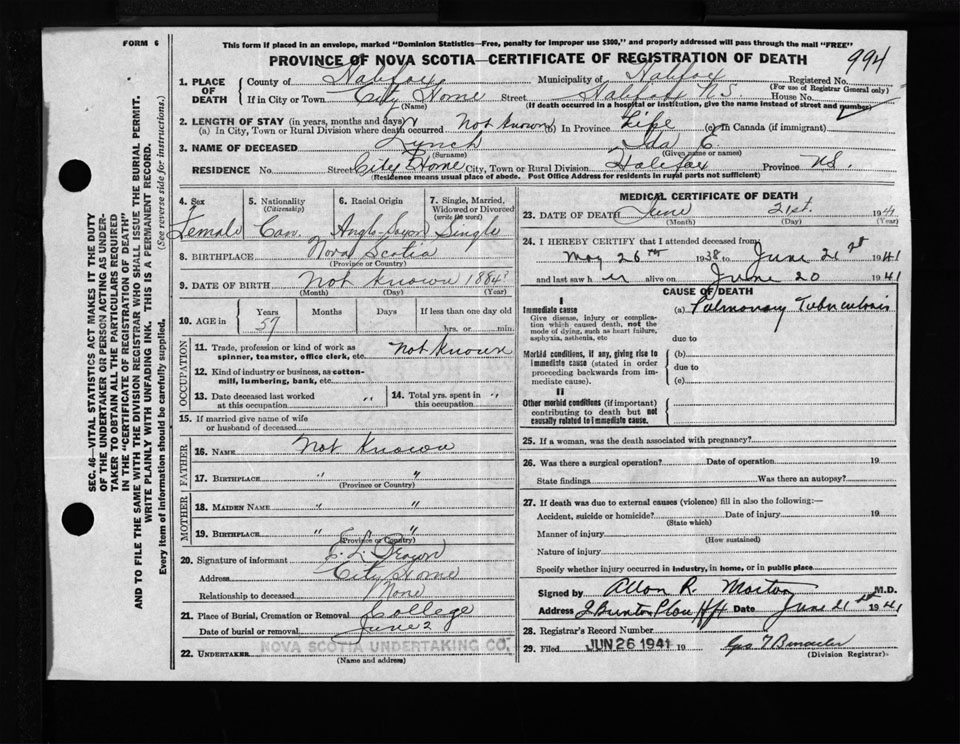 FORM 6
This form if placed in an envelope, marked "Dominion Statistics—Free, penalty for improper use $300," and properly addressed will pass through the mail "FREE"
PROVINCE OF NOVA SCOTIA—CERTIFICATE OF REGISTRATION OF DEATH
994
1. PLACE OF DEATH
County of Halifax Municipality of Halifax Registered No.
(For use of Registrar General only)
If in City or Town City Home Street Halifax N.S. House No.
(Name) (If death occurred in a hospital or institution, give the name instead of street and number)
2. LENGTH OF STAY (in years, months and days)
(a) In City, Town or Rural Division where death occurred Not Known (b) In Province Life (c) In Canada (if immigrant)
3. NAME OF DECEASED Lynch Ida E.
(Surname) (Given name or names)
RESIDENCE No. Street City Home City, Town or Rural Division Halifax Province N.S.
(Residence means usual place of abode. Post Office Address for residents in rural parts not sufficient)
4. Sex
Female
5. Nationality
(Citizenship)
Can
6. Racial Origin
Anglo-Saxon
7. Single, Married, Widowed or Divorced
(write the word)
Single
8. BIRTHPLACE Nova Scotia
(Province or Country)
9. DATE OF BIRTH Not Known 1884
(Month) (Day) (Year)
10. AGE in
Years Months Days If less than one day old
57 hrs. or min.
OCCUPATION
11. Trade, profession or kind of work as spinner, teamster, office clerk, etc. Not Known
12. Kind of industry or business, as cotton-mill, lumbering, bank, etc.
13. Date deceased last worked at this occupation " 14. Total yrs. spent in this occupation "
15. If married give name of wife or husband of deceased
FATHER
16. NAME Not Known
17. BIRTHPLACE " "
(Province or Country)
MOTHER
18. MAIDEN NAME " "
19. BIRTHPLACE " "
(Province or Country)
20. Signature of informant E. L. Brown
Address City Home
Relationship to deceased None
21. Place of Burial, Cremation or Removal College
Date of burial or removal June 2
22. UNDERTAKER NOVA SCOTIA UNDERTAKING CO.
(Name and address)
MEDICAL CERTIFICATE OF DEATH
23. DATE OF DEATH June 21st 1941
(Month) (Day) (Year)
24. I HEREBY CERTIFY that I attended deceased from
May 26th 1938 to June 21st 1941
and last saw h er alive on June 20 1941
CAUSE OF DEATH
I
Immediate cause (a) Pulmonary Tuberculosis
Give disease, injury or complication which caused death, not the mode of dying, such as heart failure, asphyxia, asthenia, etc
due to
Morbid conditions, if any, giving rise to immediate cause (stated in order proceeding backwards from immediate cause).
(b)
due to
(c)
II
Other morbid conditions (if important) contributing to death but not causally related to immediate cause.
25. If a woman, was the death associated with pregnancy?
26. Was there a surgical operation? Date of operation 19
State findings Was there an autopsy?
27. If death was due to external causes (violence) fill in also the following:—
Accident, suicide or homicide? Date of injury 19
(State which)
Manner of injury
(How sustained)
Nature of injury
Specify whether injury occurred in industry, in home, or in public place
Signed by Allan R. Morton M.D.
Address Date June 21st 1941
28. Registrar's Record Number
29. Filed JUN 26 1941 19
(Division Registrar)
SEC. 46—VITAL STATISTICS ACT MAKES IT THE DUTY
OF THE UNDERTAKER OR PERSON ACTING AS UNDER-
TAKER TO OBTAIN ALL THE PARTICULARS REQUIRED
IN THE "CERTIFICATE OF REGISTRATION OF DEATH"
AND TO FILE THE SAME WITH THE DIVISION REGISTRAR WHO SHALL ISSUE THE BURIAL PERMIT.
WRITE PLAINLY WITH UNFADING INK. THIS IS A PERMANENT RECORD.
Every item of information should be carefully supplied. (See reverse side for instructions.)